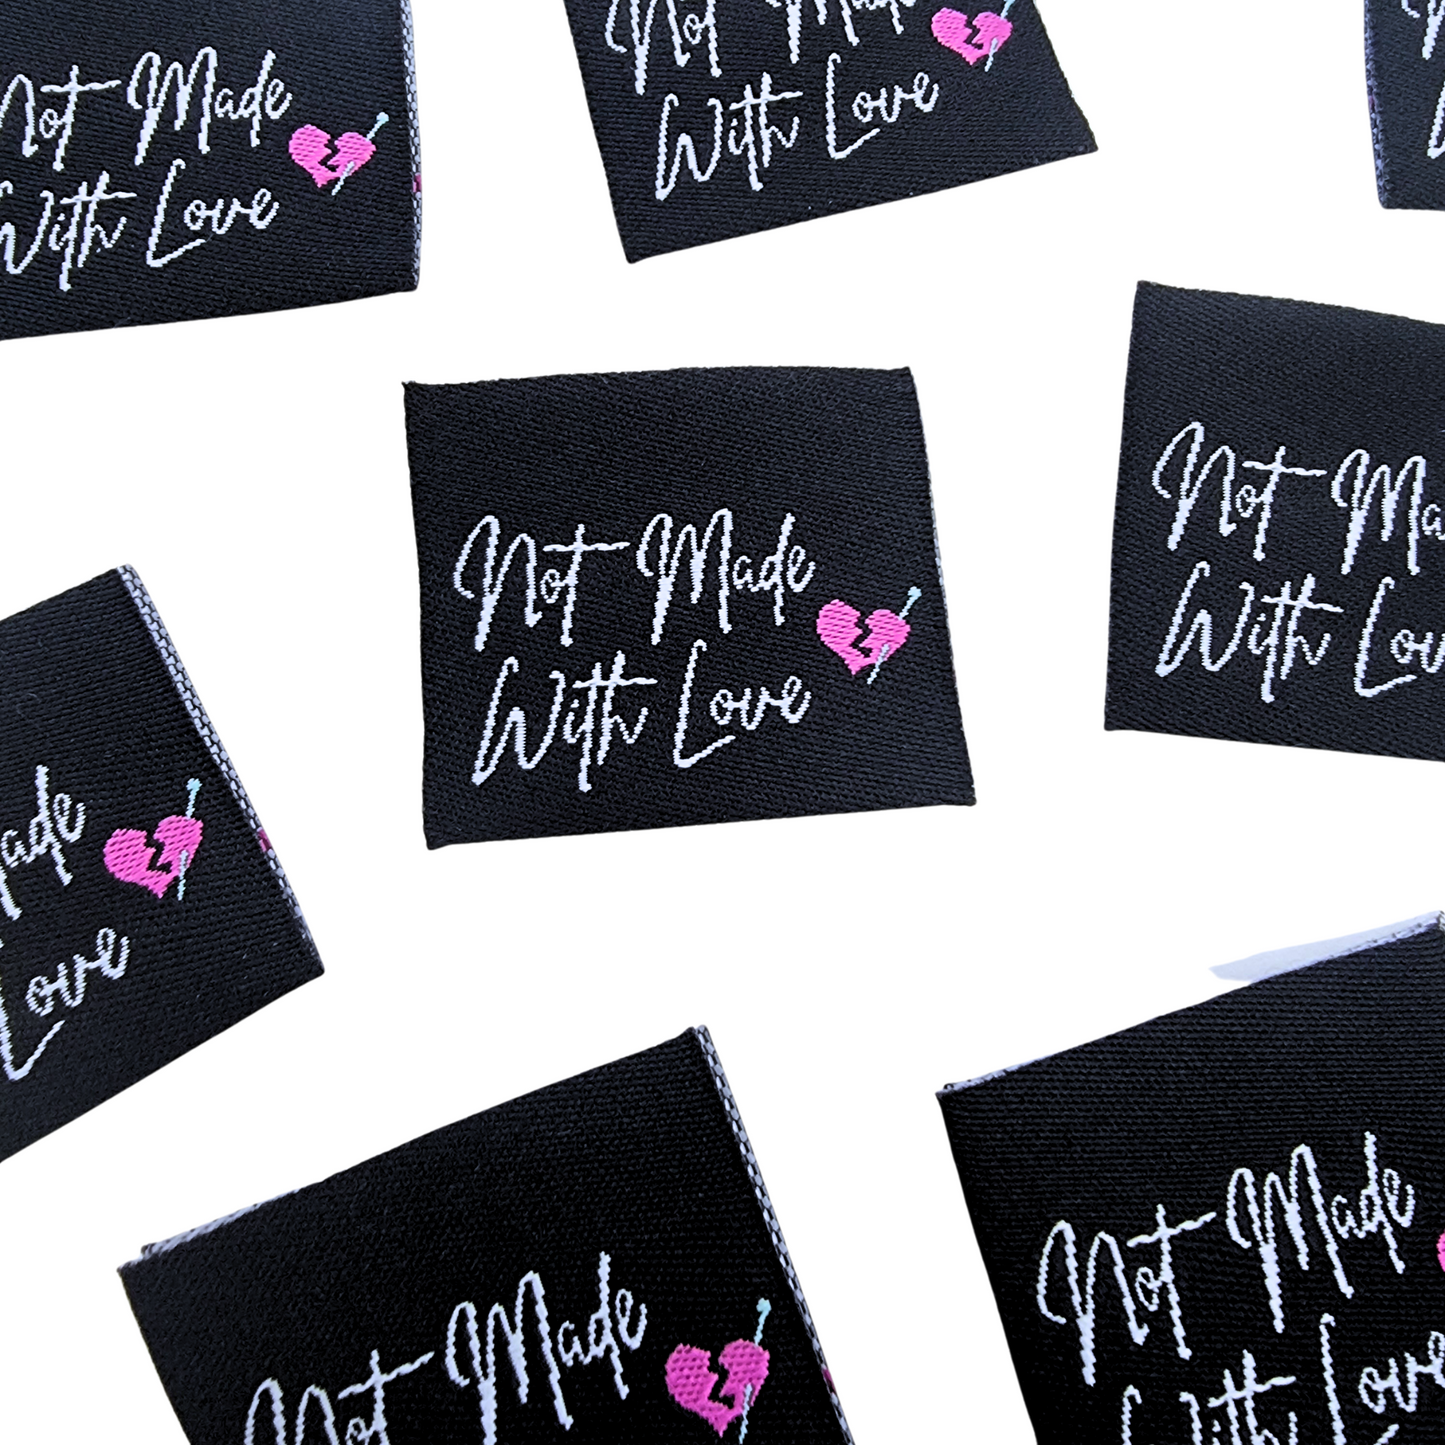 Not Made
With Love
Not Made
With Love
Not Made
With Love
Not Ma
With Lov
ade
Love
Not Made
Not Made
With Love